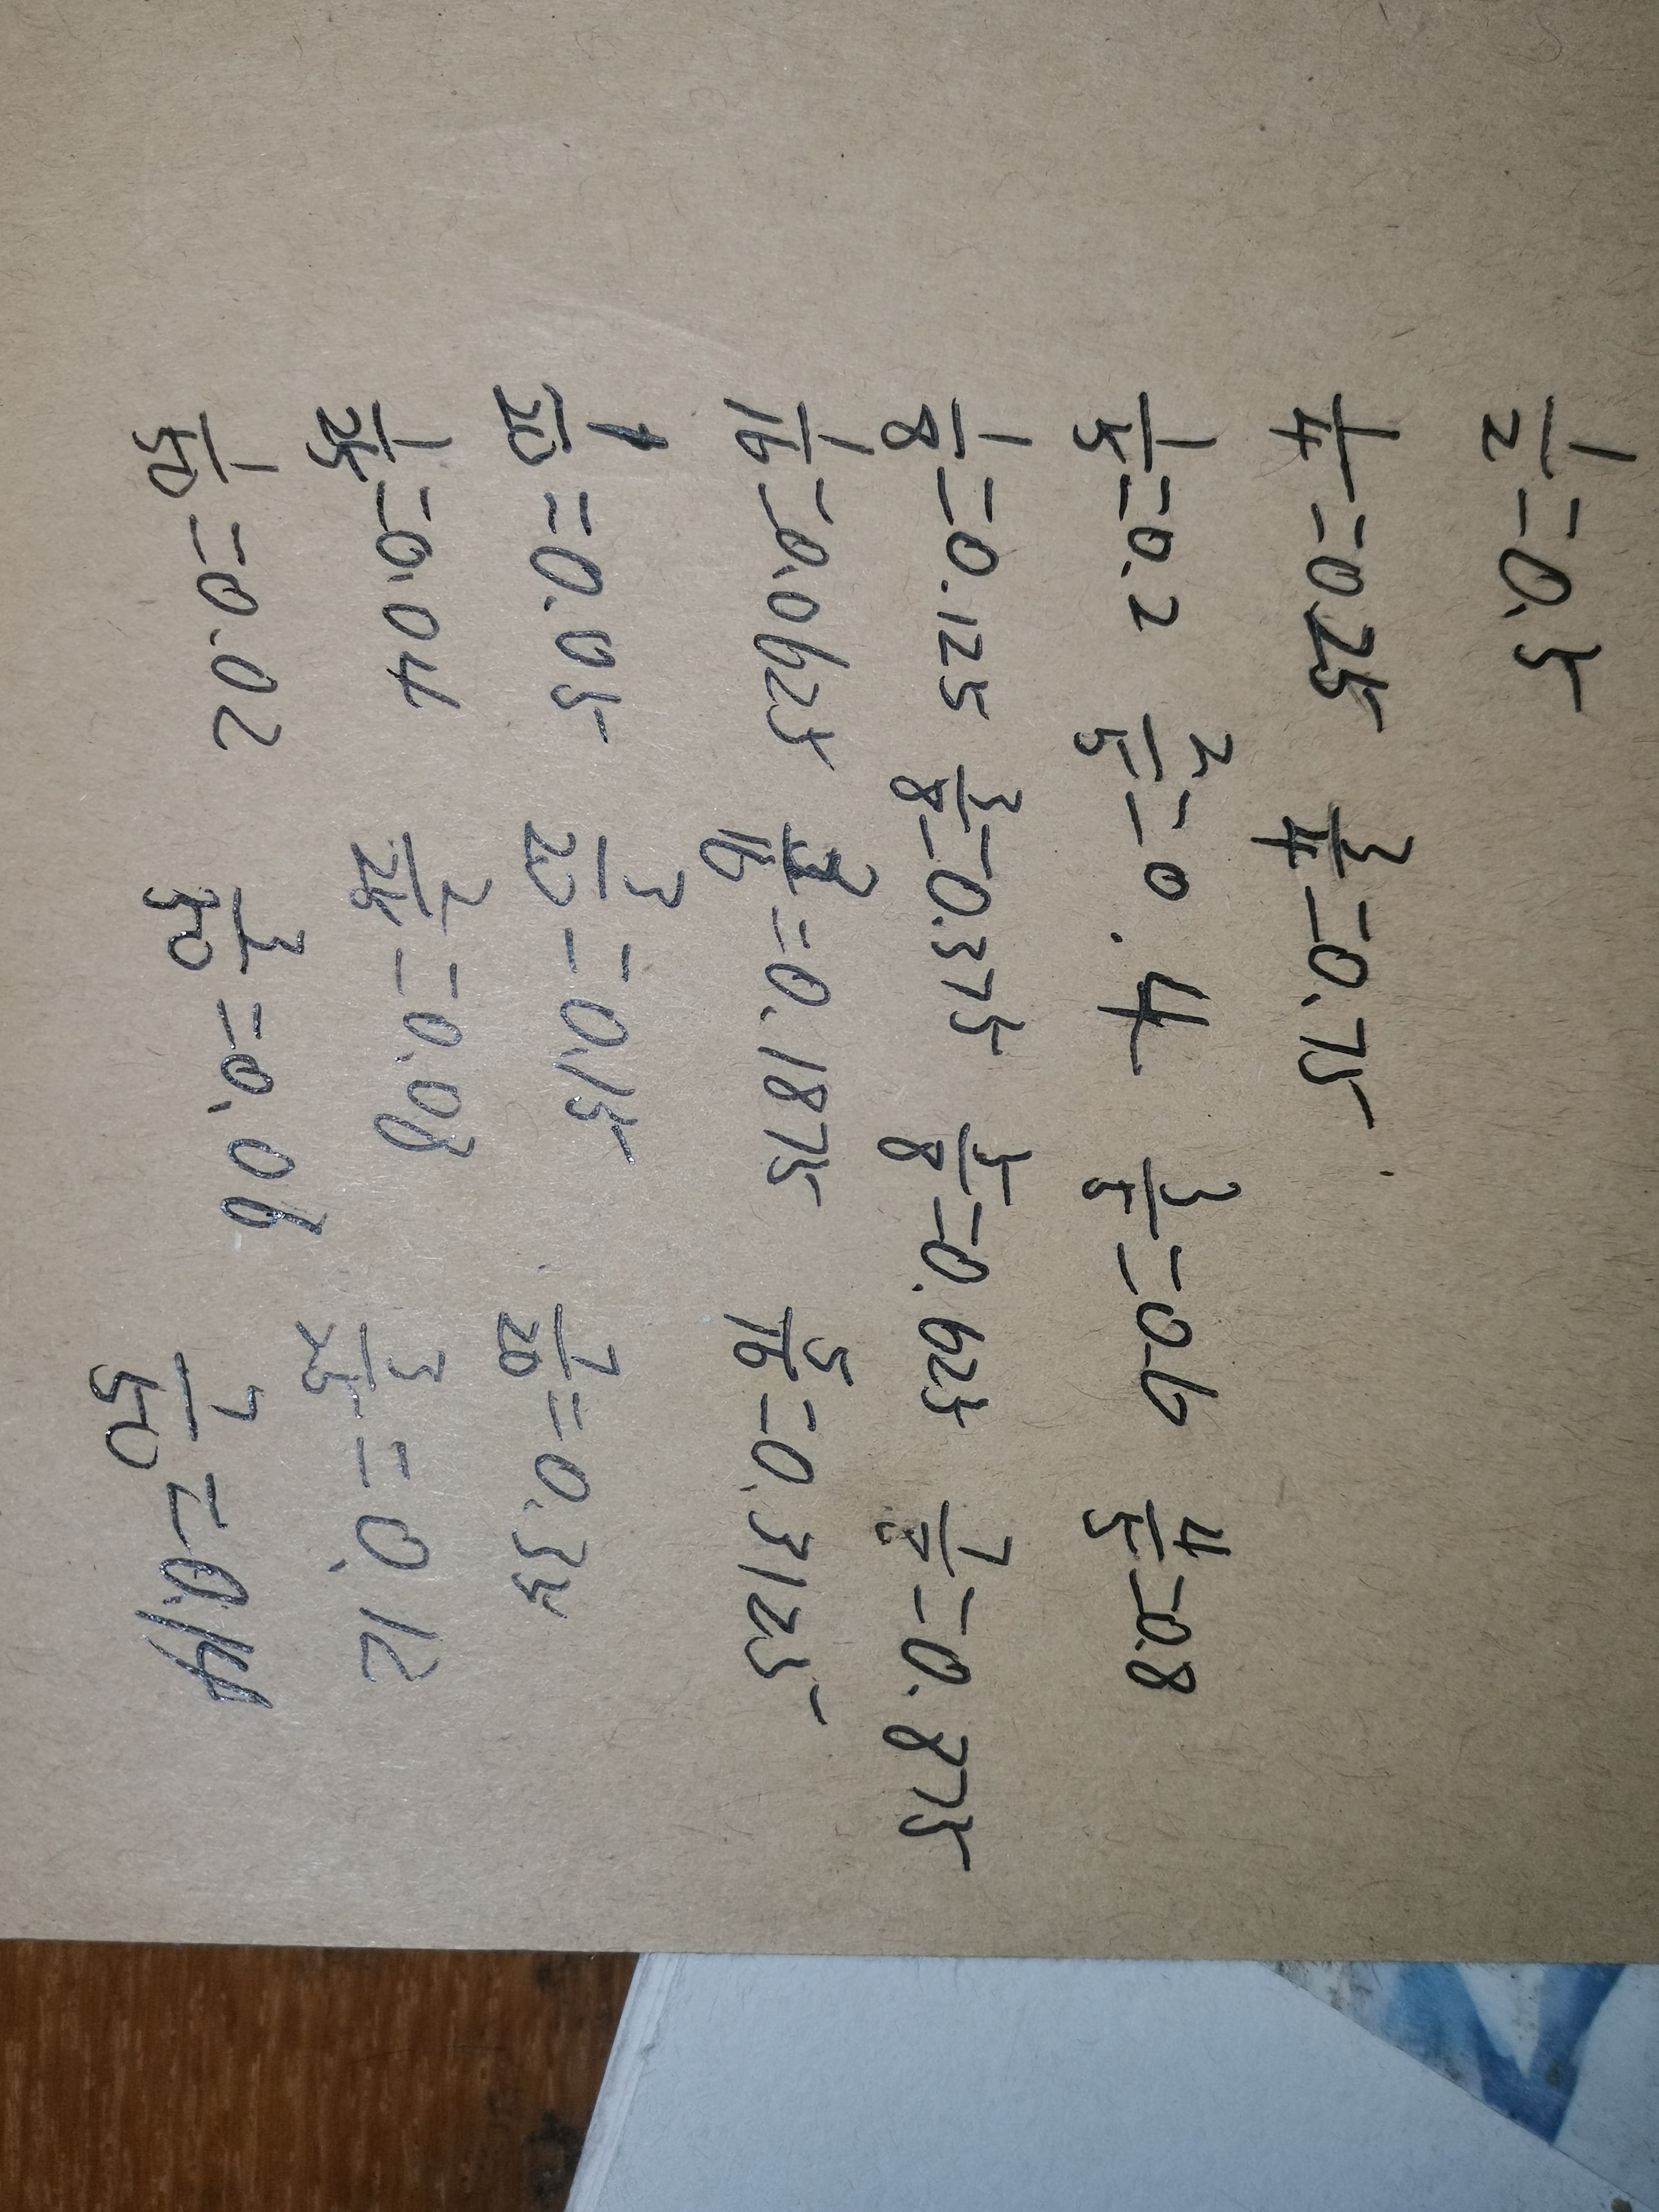 1/2=0.5
1/4=0.25 3/4=0.75
1/5=0.2 2/5=0.4 3/5=0.6 4/5=0.8
1/8=0.125 3/8=0.375 5/8=0.625 7/8=0.875
1/16=0.0625 3/16=0.1875 5/16=0.3125
1/20=0.05 3/20=0.15 7/20=0.35
1/25=0.04 2/25=0.08 3/25=0.12
1/50=0.02 3/50=0.06 7/50=0.14